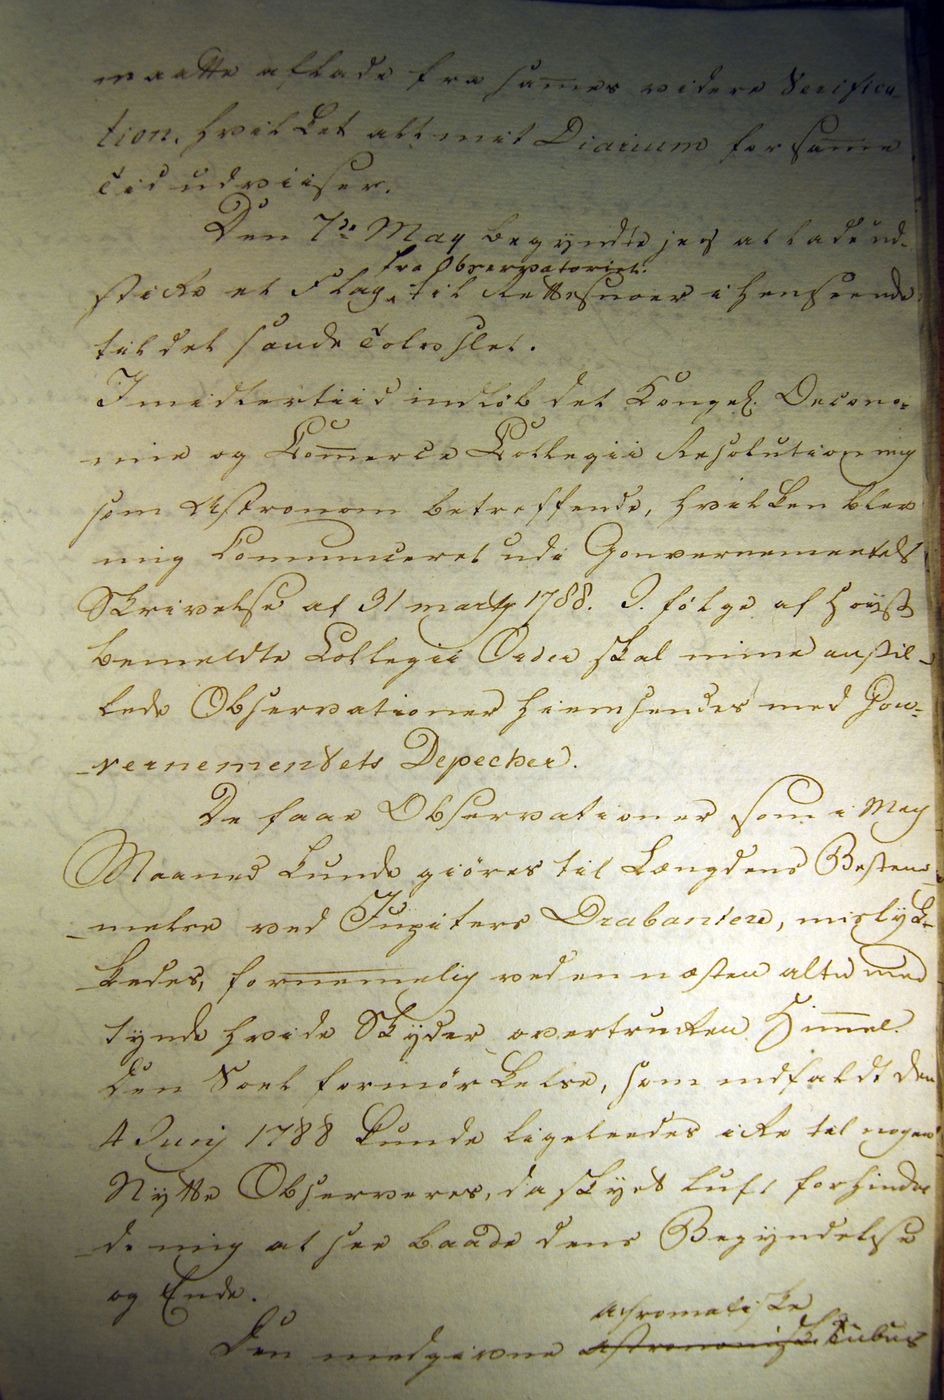 maatte aflade fra sammes videre Verifica
tion, hvilket alt mit Diarium for samme
Tid udviiser.
Den 7de May begyndte jeg at lade ud-
fra Observatoriet
stikke et Flag til Rettesnoer i henseende
til det sande
Imidlertiid indløb det Kongel. Oecono-
mie og Commerce Collegii Resolution mig
som Astronom betreffende, hvilken blev
mig Communiceret udi Gouvernementets
Skrivelse af 31 1788. I følge af høyst
bemeldte Collegii Order skal mine anstil-
lede Observationer hiemsendes med Gou-
vernementets Depecher.
De faae Observationer som i May
Maaned kunde giöres til Længdens Bestem-
melse ved Jupiters Drabantere, mislyk-
kedes, fornemmelig ved en næsten altid med
tynde hvide Skyder overtrukken Himmel.
Den Soel formørkelse, som indfaldt den
4 Junij 1788 kunde ligeleedes ikke til nogen
Nytte Observeres, da skyet Luft forhindre
de mig at see baade dens Begyndelse
og Ende.
achromatiske
Den medgivne astronomiske Tubus